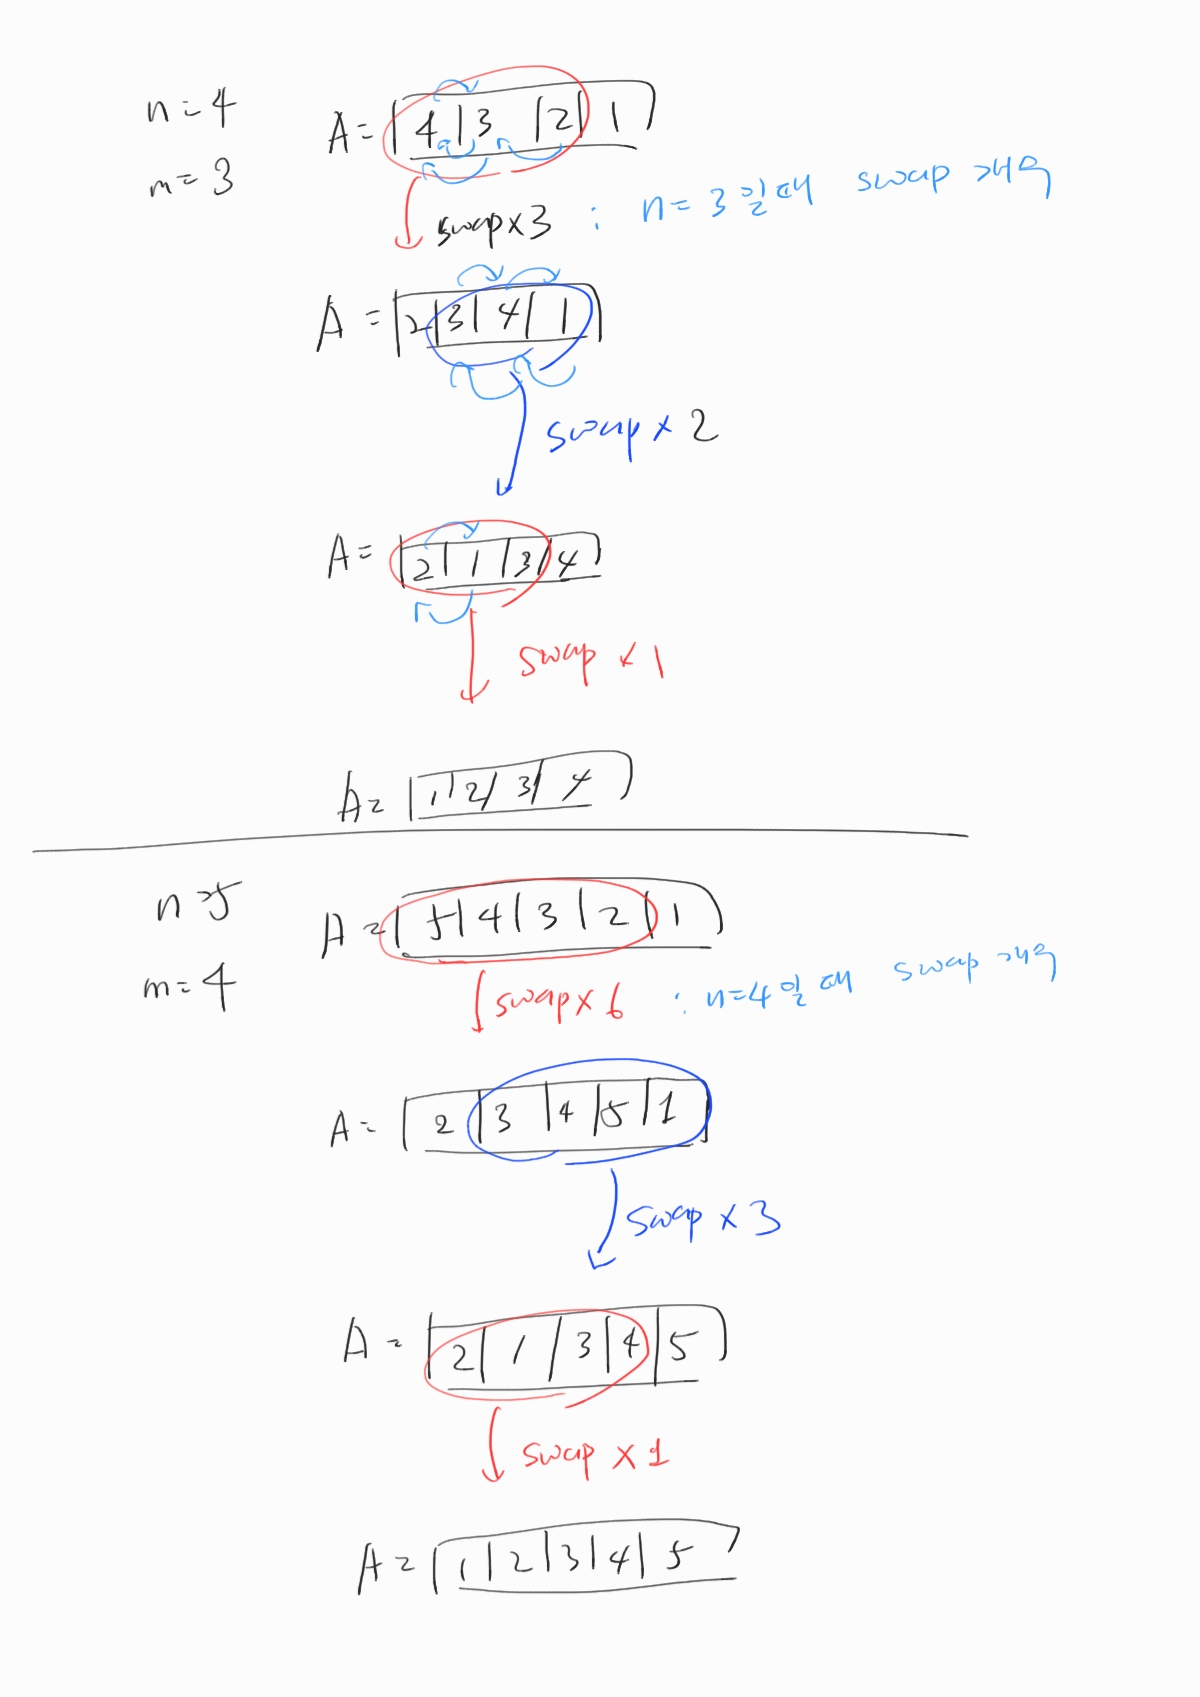 n=4
A=[4|3|2|1]
m=3
swap×3 : n=3일때 swap 개수
A=[2|3|4|1]
swap×2
A=[2|1|3|4]
swap×1
A=[1|2|3|4]
n=5
A=[5|4|3|2|1]
m=4
swap×6 : n=4일때 swap 개수
A=[2|3|4|5|1]
swap×3
A=[2|1|3|4|5]
swap×1
A=[1|2|3|4|5]